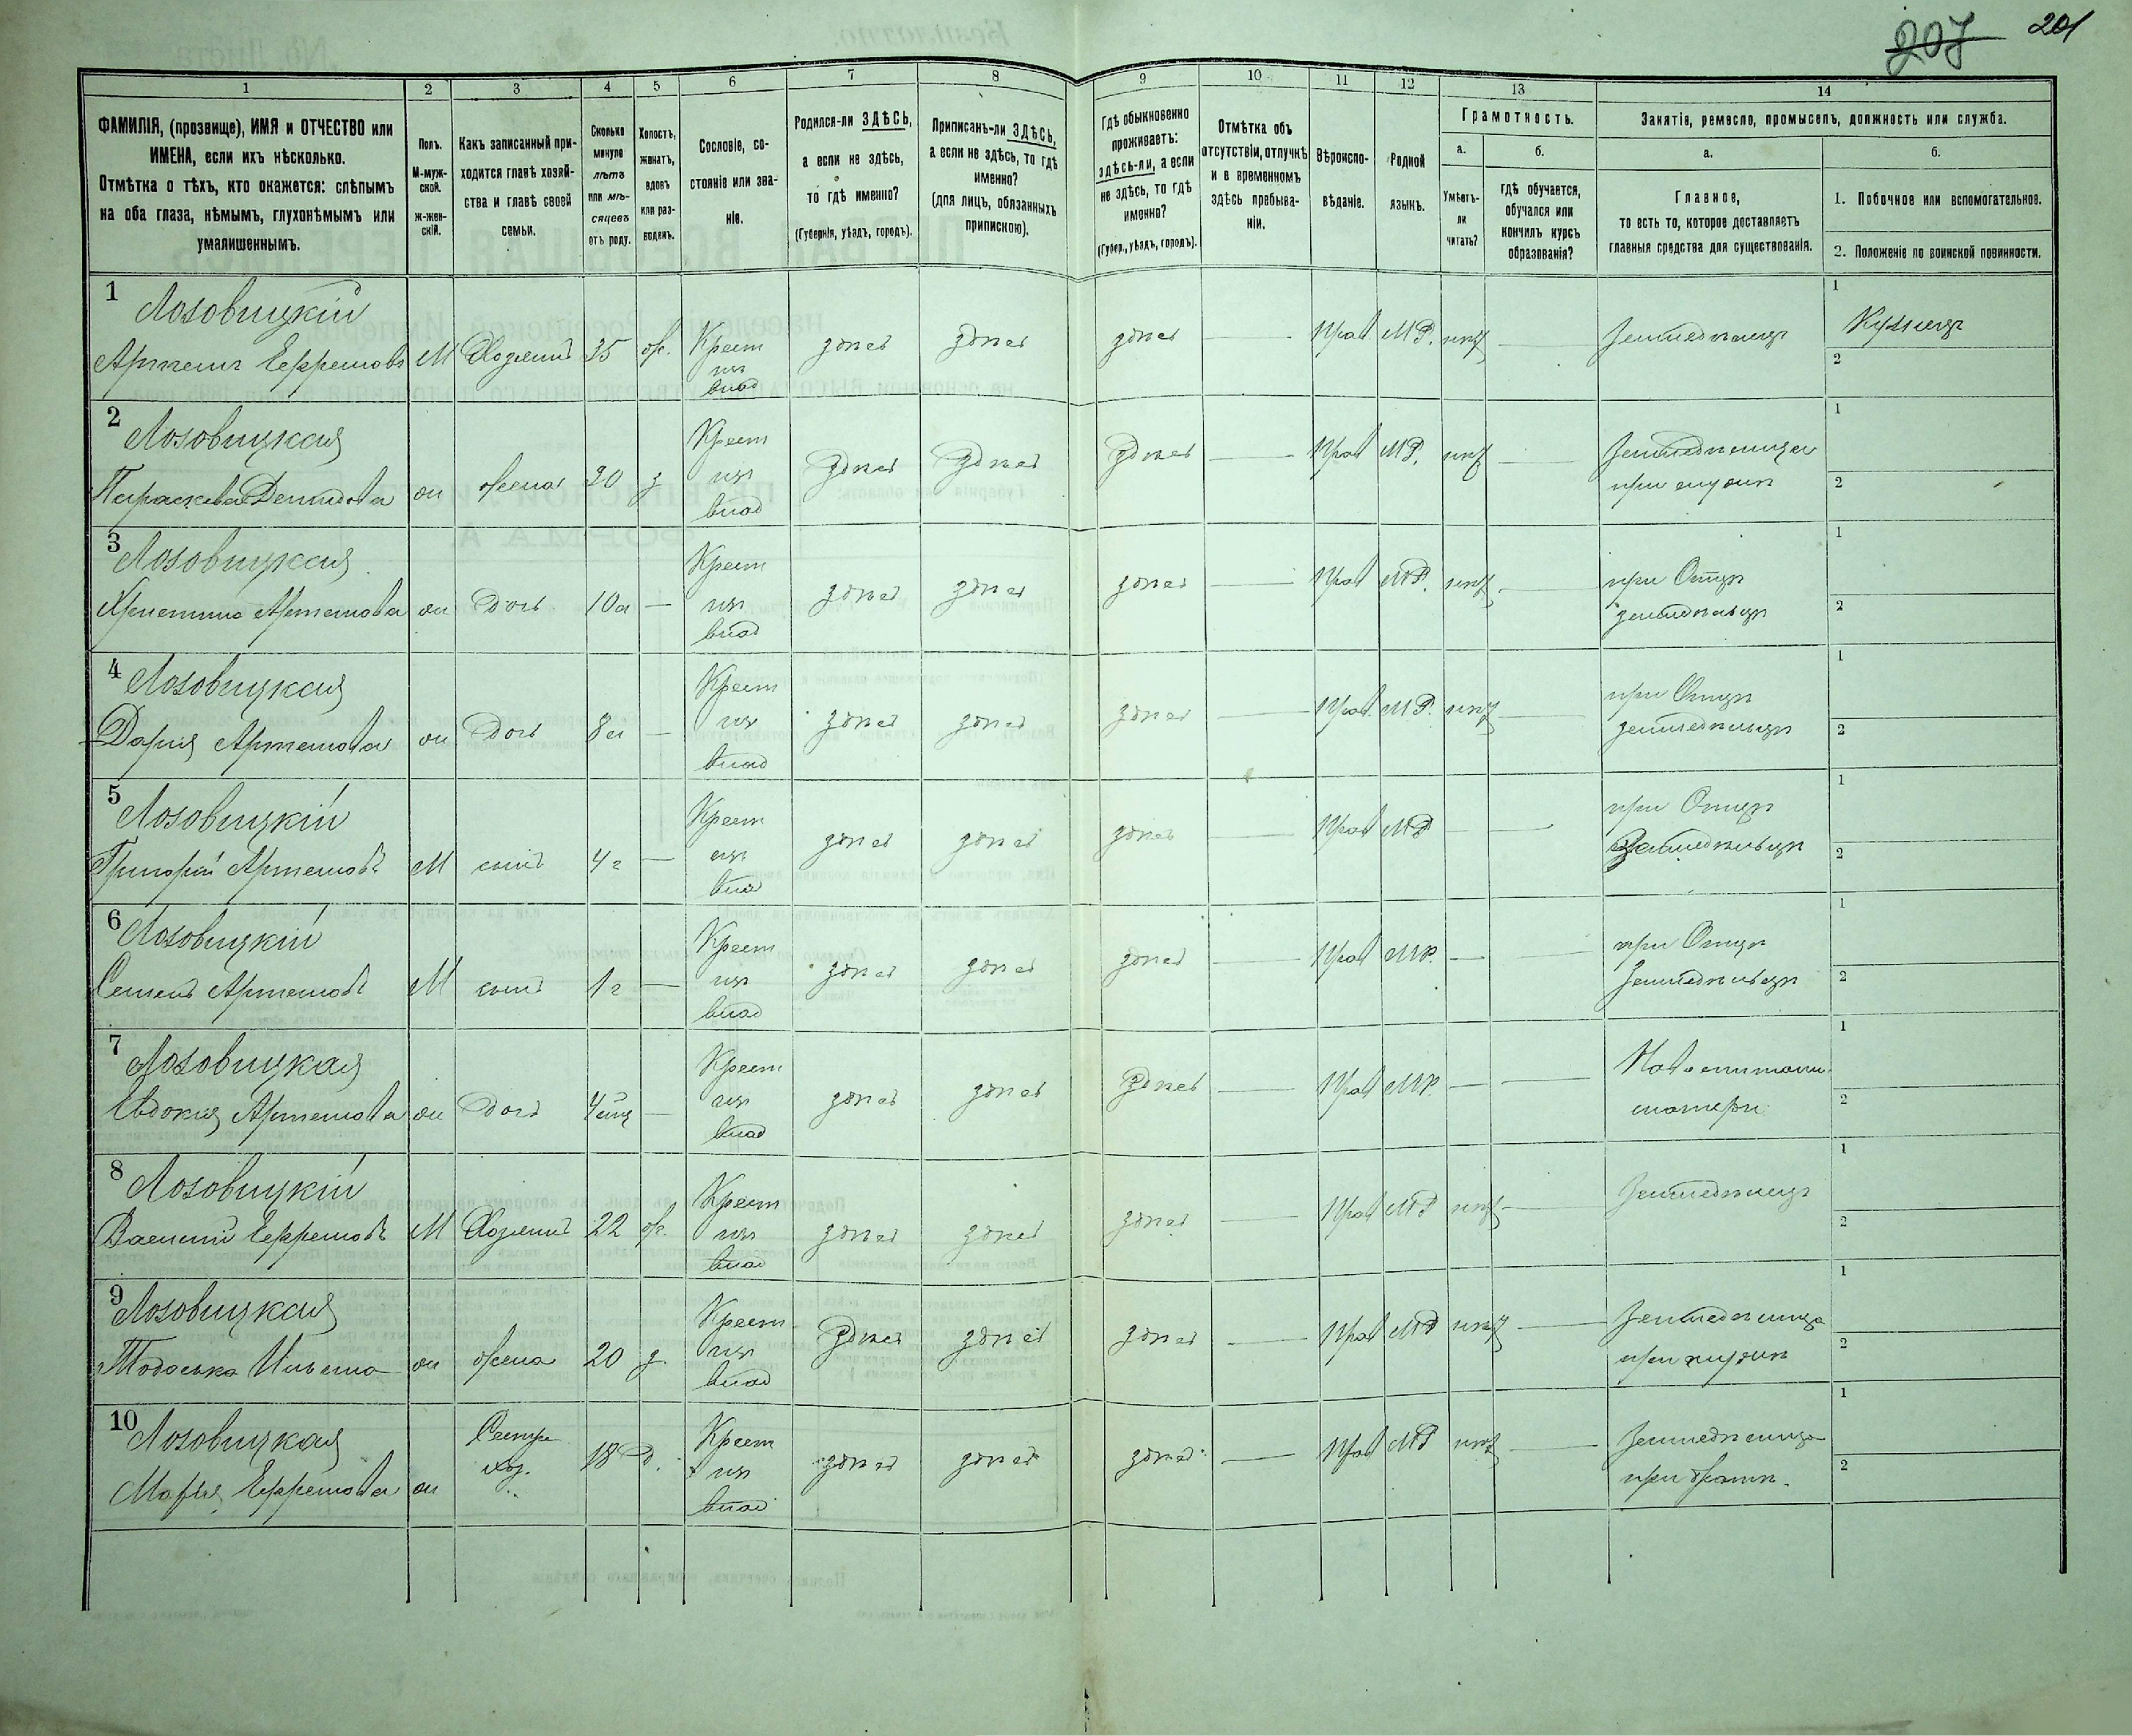 207 201
1 2 3 4 5 6 7 8 9 10 11 12 13 14
ФАМИЛІЯ, (прозвище), ИМЯ и ОТЧЕСТВО или
ИМЕНА, если ихъ нѣсколько.
Отмѣтка о тѣхъ, кто окажется: слѣпымъ
на оба глаза, нѣмымъ, глухонѣмымъ или
умалишеннымъ.
Полъ.
М-муж-
ской.
ж-жен-
скій.
Какъ записанный при-
ходится главѣ хозяй-
ства и главѣ своей
семьи.
Сколько
минуло
лѣтъ
или мѣ-
сяцевъ
отъ роду.
Холостъ,
женатъ,
вдовъ
или раз-
веденъ.
Сословіе, со-
стояніе или зва-
ніе.
Родился-ли ЗДѢСЬ,
а если не здѣсь,
то гдѣ именно?
(Губернія, уѣздъ, городъ).
Приписанъ-ли ЗДѢСЬ,
а если не здѣсь, то гдѣ
именно?
(для лицъ, обязанныхъ
припискою).
Гдѣ обыкновенно
проживаетъ:
здѣсь-ли, а если
не здѣсь, то гдѣ
именно?
(Губер., уѣздъ, городъ).
Отмѣтка объ
отсутствіи, отлучкѣ
и о временномъ
здѣсь пребыва-
ніи.
Вѣроиспо-
вѣданіе.
Родной
языкъ.
Грамотность.
а.
Умѣетъ-
ли
читать?
б.
гдѣ обучается,
обучался или
кончилъ курсъ
образованія?
Занятіе, ремесло, промыселъ, должность или служба.
а.
Главное,
то есть то, которое доставляетъ
главныя средства для существованія.
б.
1. Побочное или вспомогательное.
2. Положеніе по воинской повинности.
1
Лозовицкій
Артемъ Ефремовъ М Хозяинъ 35 ж. Крест
изъ
влад
здѣсь здѣсь здѣсь — Прав МР. нѣт — Земледѣлецъ
1 Кузнецъ
2
2
Лозовицкая
Параскева Демидова ж жена 30 з Крест
изъ
влад
здѣсь здѣсь здѣсь — Прав МР. нѣт — Земледѣлица
при мужѣ
1
2
3
Лозовицкая
Христина Артемова ж дочь 10 л — Крест
изъ
влад
здѣсь здѣсь здѣсь — Прав МР. нѣт — при Отцѣ
земледѣльцѣ
1
2
4
Лозовицкая
Дарія Артемова ж Дочь 8 л — Крест
изъ
влад
здѣсь здѣсь здѣсь — Прав. МР. нѣт — при Отцѣ
земледѣльцѣ
1
2
5
Лозовицкій
Григорій Артемовъ М сынъ 4 г — Крест
изъ
влад
здѣсь здѣсь здѣсь — Прав МР — — при Отцѣ
Земледѣльцѣ
1
2
6
Лозовицкій
Семенъ Артемовъ М сынъ 1 г — Крест
изъ
влад
здѣсь здѣсь здѣсь — Прав МР. — — при Отцѣ
Земледѣльцѣ
1
2
7
Лозовицкая
Евдокія Артемова ж Дочь 4 мц — Крест
изъ
влад
здѣсь здѣсь здѣсь — Прав МР. — —
матери
1
2
8
Лозовицкій
Василій Ефремовъ М Хозяинъ 22 ж. Крест
изъ
влад
здѣсь здѣсь здѣсь — Прав МР нѣт — Земледѣлецъ
1
2
9
Лозовицкая
Тодоська Ильина ж жена 20 з. Крест
изъ
влад
здѣсь здѣсь здѣсь — Прав МР нѣт — Земледѣлица
при мужѣ
1
2
10
Лозовицкая
Марья Ефремова ж Сестра
хоз. 18 д. Крест
изъ
влад
здѣсь здѣсь здѣсь — Прав МР нѣт — Земледѣлица
при братѣ.
1
2